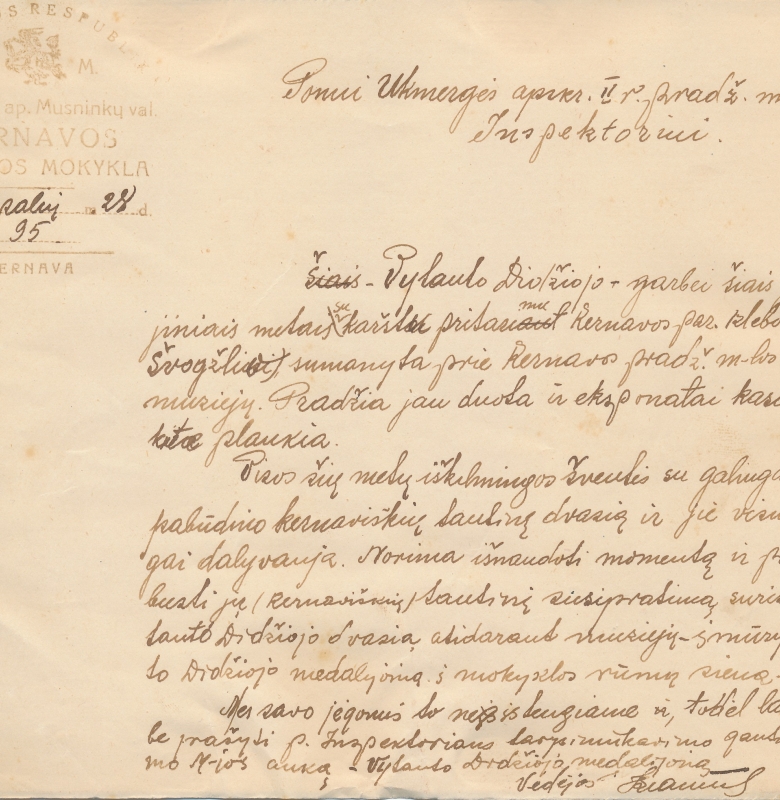 OS RESPUBLI
M.
ap. Musninkų val.
RNAVOS
OS MOKYKLA
28 d.
95
ERNAVA
Ponui Ukmergės apskr. II r. pradž. m
Inspektoriui.
šiais - Vytauto Didžiojo - garbei šiais
jiniais metais su karštu pritarimu Kernavos par. klebo
sumanyta prie Kernavos pradž. m-los
muziejų. Pradžia jau duota ir eksponatai kas
plaukia.
Visos šių metų iškilmingos šventės su galinga
pabudino kernaviškių tautinę dvasią ir jie visu
gai dalyvauja. Norima išnaudoti momentą ir p
busti jų (kernaviškių) tautinį susipratimą, suriš
tauto Didžiojo dvasią atidarant muziejų - įmūry
to Didžiojo medalijoną į mokyklos rūmų sieną.
Mes savo jėgomis to neįsistengiame ir, todėl ta
be prašyti p. Inspektoriaus tarpininkavimo gaut
mo M-jos auką - Vytauto Didžiojo medalijoną
Vedėjas